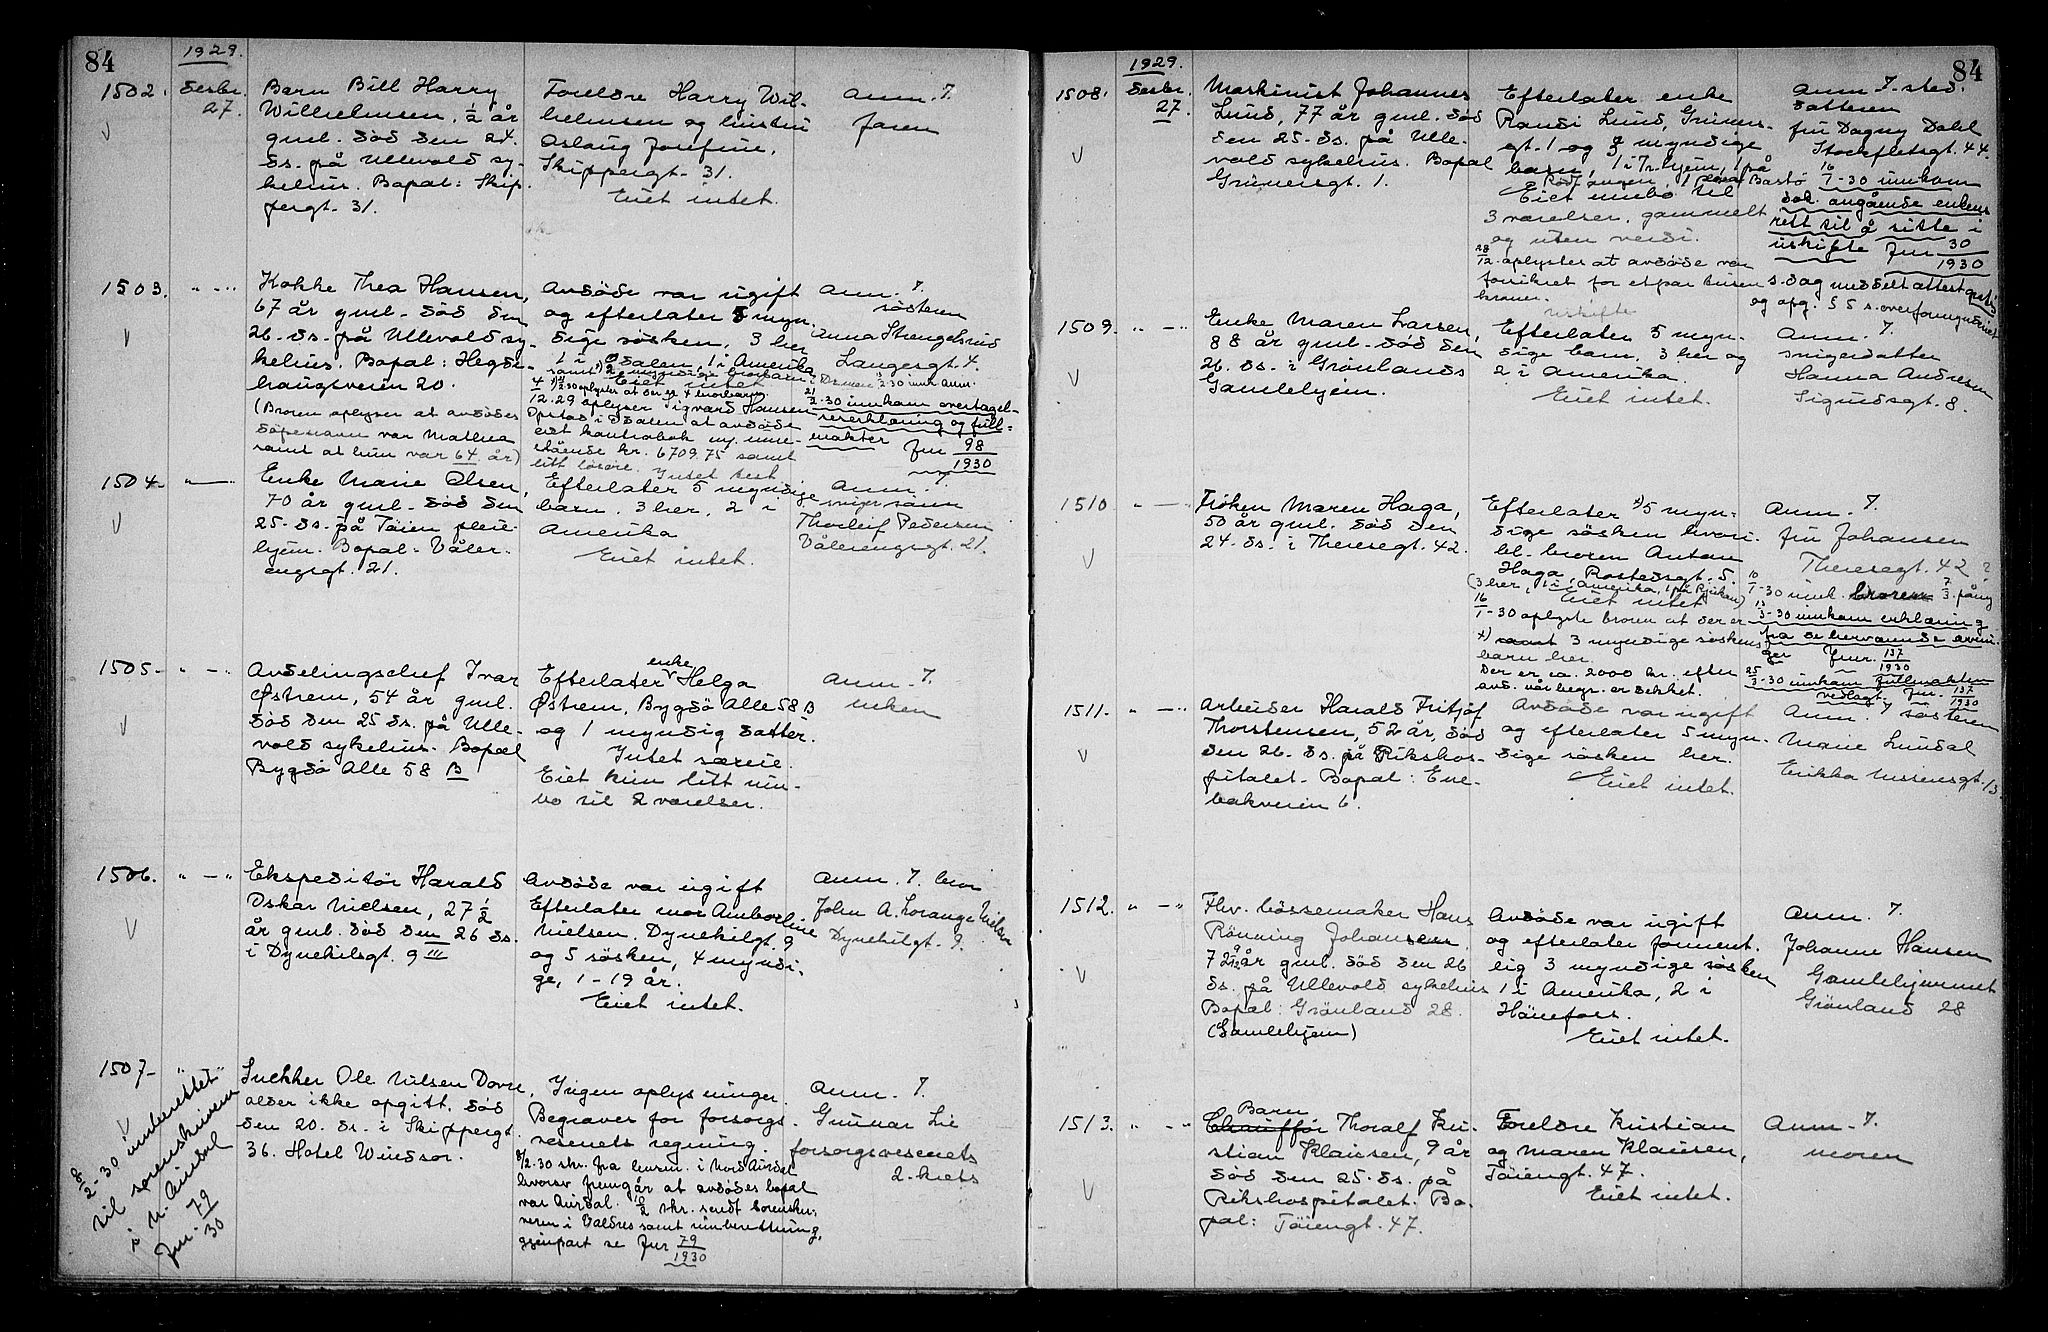 84
1929.
1502.
Desbr.
27.
Barn Bill Harry
Wilhelmsen, 1/2 år
gml. død den 24.
ds. på Ullevold sy-
kehus. Bopal: Skip-
pergt. 31.
Foreldre Harry Wil-
helmsen og hustru
Aslaug Josefine,
Skippergt. 31.
Eiet intet.
Anm. 7.
faren
1503.
" - "
Kokke Thea Hansen,
67 år gml. død den
26. ds. på Ullevold sy-
kehus. Bopal: Hegde-
haugsveien 20.
(Broren oplyser at avdødes
døpenavn var Mathea
samt at hun var 64 år)
Avdøde var ugift
og efterlater 5 myn-
dige søsken, 3 her
1 i Odalen, 1 i Amerika
Eiet intet
12.29 oplyser Sigvard Hansen
Opstad i Odalen at avdøde
eiet kontrabok
stående kr. 6709.75 samt
litt løsøre. Intet test.
Anm. 7.
søsteren
Anna Strengelsrud
Langesgt. 4.
2.30 innkom overtagel-
seserklæring og full-
makter Jnr 98
1930
1504.
" - "
Enke Marie Olsen,
70 år gml. død den
25. ds. på Tøien pleie-
hjem. Bopal. Våler-
engsgt. 21.
Efterlater 5 myndige
barn. 3 her, 2 i
Amerika
Eiet intet.
Anm. 7.
svigersønn
Thorleif Pedersen
Vålerengsgt. 21.
1505.
" - "
Avdelingschef Ivar
Østrem, 54 år gml.
død den 25 ds. på Ulle-
vold sykehus. Bopæl
Bygdø Alle 58 B
enke
Efterlater Helga
Østrem, Bygdø Alle 58 B
og 1 myndig datter.
Intet særeie.
Eiet kun litt inn-
bo til 2 værelser.
Anm. 7.
enken
1506.
" - "
Ekspeditør Harald
Oskar Nielsen, 27 1/2
år gml. død den 26 ds.
i Dynekilsgt. 9 III
Avdøde var ugift
Efterlater mor
Nielsen, Dynekilgt. 9
og 5 søsken, 4 myndi-
ge, 1 - 19 år.
Eiet intet.
Anm. 7. bror
John A. Lorange Nielsen
Dynekilgt. 9.
1507.
"
Snekker Ole Nilsen Dovre,
alder ikke opgitt. død
den 20. ds. i Skippergt.
36. Hotel Windsor.
Ingen oplysninger.
Begraves for forsorgs-
vesenets regning.
8/2.30 skr. fra lensm. i Nord Aurdal
hvorav fremgår at avdødes bopal
var Aurdal. 8/2 skr. sendt sorenskri-
veren i Valdres samt innberetning,
gjenpart se Jnr 79
1930
Anm. 7.
Gunnar Lie
forsorgsvesenets
2. krets
8/2-30 innberettet
til sorenskriveren
i N. Aurdal
Jnr. 79
30
84
1929.
1508.
Desbr.
27.
Maskinist Johannes
Lund, 77 år gml. død
den 25. ds. på Ulle-
vold sykehus. Bopal
Grünersgt. 1.
Efterlater enke
Randi Lund, Grüners-
gt. 1 og 3 myndige
barn, 1 i Tr.hjem, 1 på
Eiet innbo til
3 værelser, gammelt
og uten verdi.
28/12 oplystes at avdøde var
forsikret for et par tusen
kroner.
uskifte
Anm. 7. sted-
datteren
fru Dagny Dahl
Stockfletsgt. 44.
16/1-30 innkom
dok. angående enkens
rett til å sitte i
uskifte Jnr 30
1930
s. dag meddelt attest
og opg. § 5 s. overformynderiet
1509.
" - "
Enke Maren Larsen,
88 år gml. død den
26. ds. i Grønlands
Gamlehjem.
Efterlater 5 myn-
dige barn, 3 her og
2 i Amerika.
Eiet intet.
Anm. 7.
svigerdatter
Hanna Andresen
Sigurdsgt. 8.
1510
" - "
Frøken Maren Haga,
50 år gml. død den
24. ds. i Theresegt. 42.
Efterlater x) 5 myn-
dige søsken hvori-
bl. broren Anton
Haga, Rostedsgt. 5.
(3 her, 1 i Amerika, 1 på Rjukan)
Eiet intet
16/1-30 oplyste broren at der er
x) samt 3 myndige søskens
barn her.
Der er ca. 2000 kr. efter
avd. når begr. er dekket.
Anm. 7.
fru Johansen
Theresegt. 42 ?
10/1-30 innk. broren 7/3
13/3-30 innkom erklæring
fra de herværende arvin-
ger Jnr. 137
1930
25/3-30 innkom fullmakten
vedlagt Jnr. 137
1930
1511.
" - "
Arbeider Harald Fritjof
Thorstensen, 52 år, død
den 26. ds. på Rikshos-
pitalet. Bopal: Ene-
bakveien 6.
Avdøde var ugift
og efterlater 5 myn-
dige søsken her.
Eiet intet.
Anm. 7 søsteren
Marie Lundal
Erikka Nissensgt. 13.
1512.
" - "
Fhv. bøssemaker Hans
Rønning Johansen
72 9/12 år gml. død den 26
ds. på Ullevold sykehus
Bopal: Grønland 28.
(Gamlehjem)
Avdøde var ugift
og efterlater forment-
lig 3 myndige søsken
1 i Amerika, 2 i
Hønefoss.
Eiet intet.
Anm. 7.
Johanne Hansen
Gamlehjemmet
Grønland 28
1513.
" - "
Barn
Chauffør Thoralf Kri-
stian Klausen, 9 år
død den 25. ds. på
Rikshospitalet. Bo-
pal: Tøiengt. 47.
Foreldre Kristian
og Maren Klausen,
Tøiengt. 47.
Eiet intet.
Anm. 7.
moren